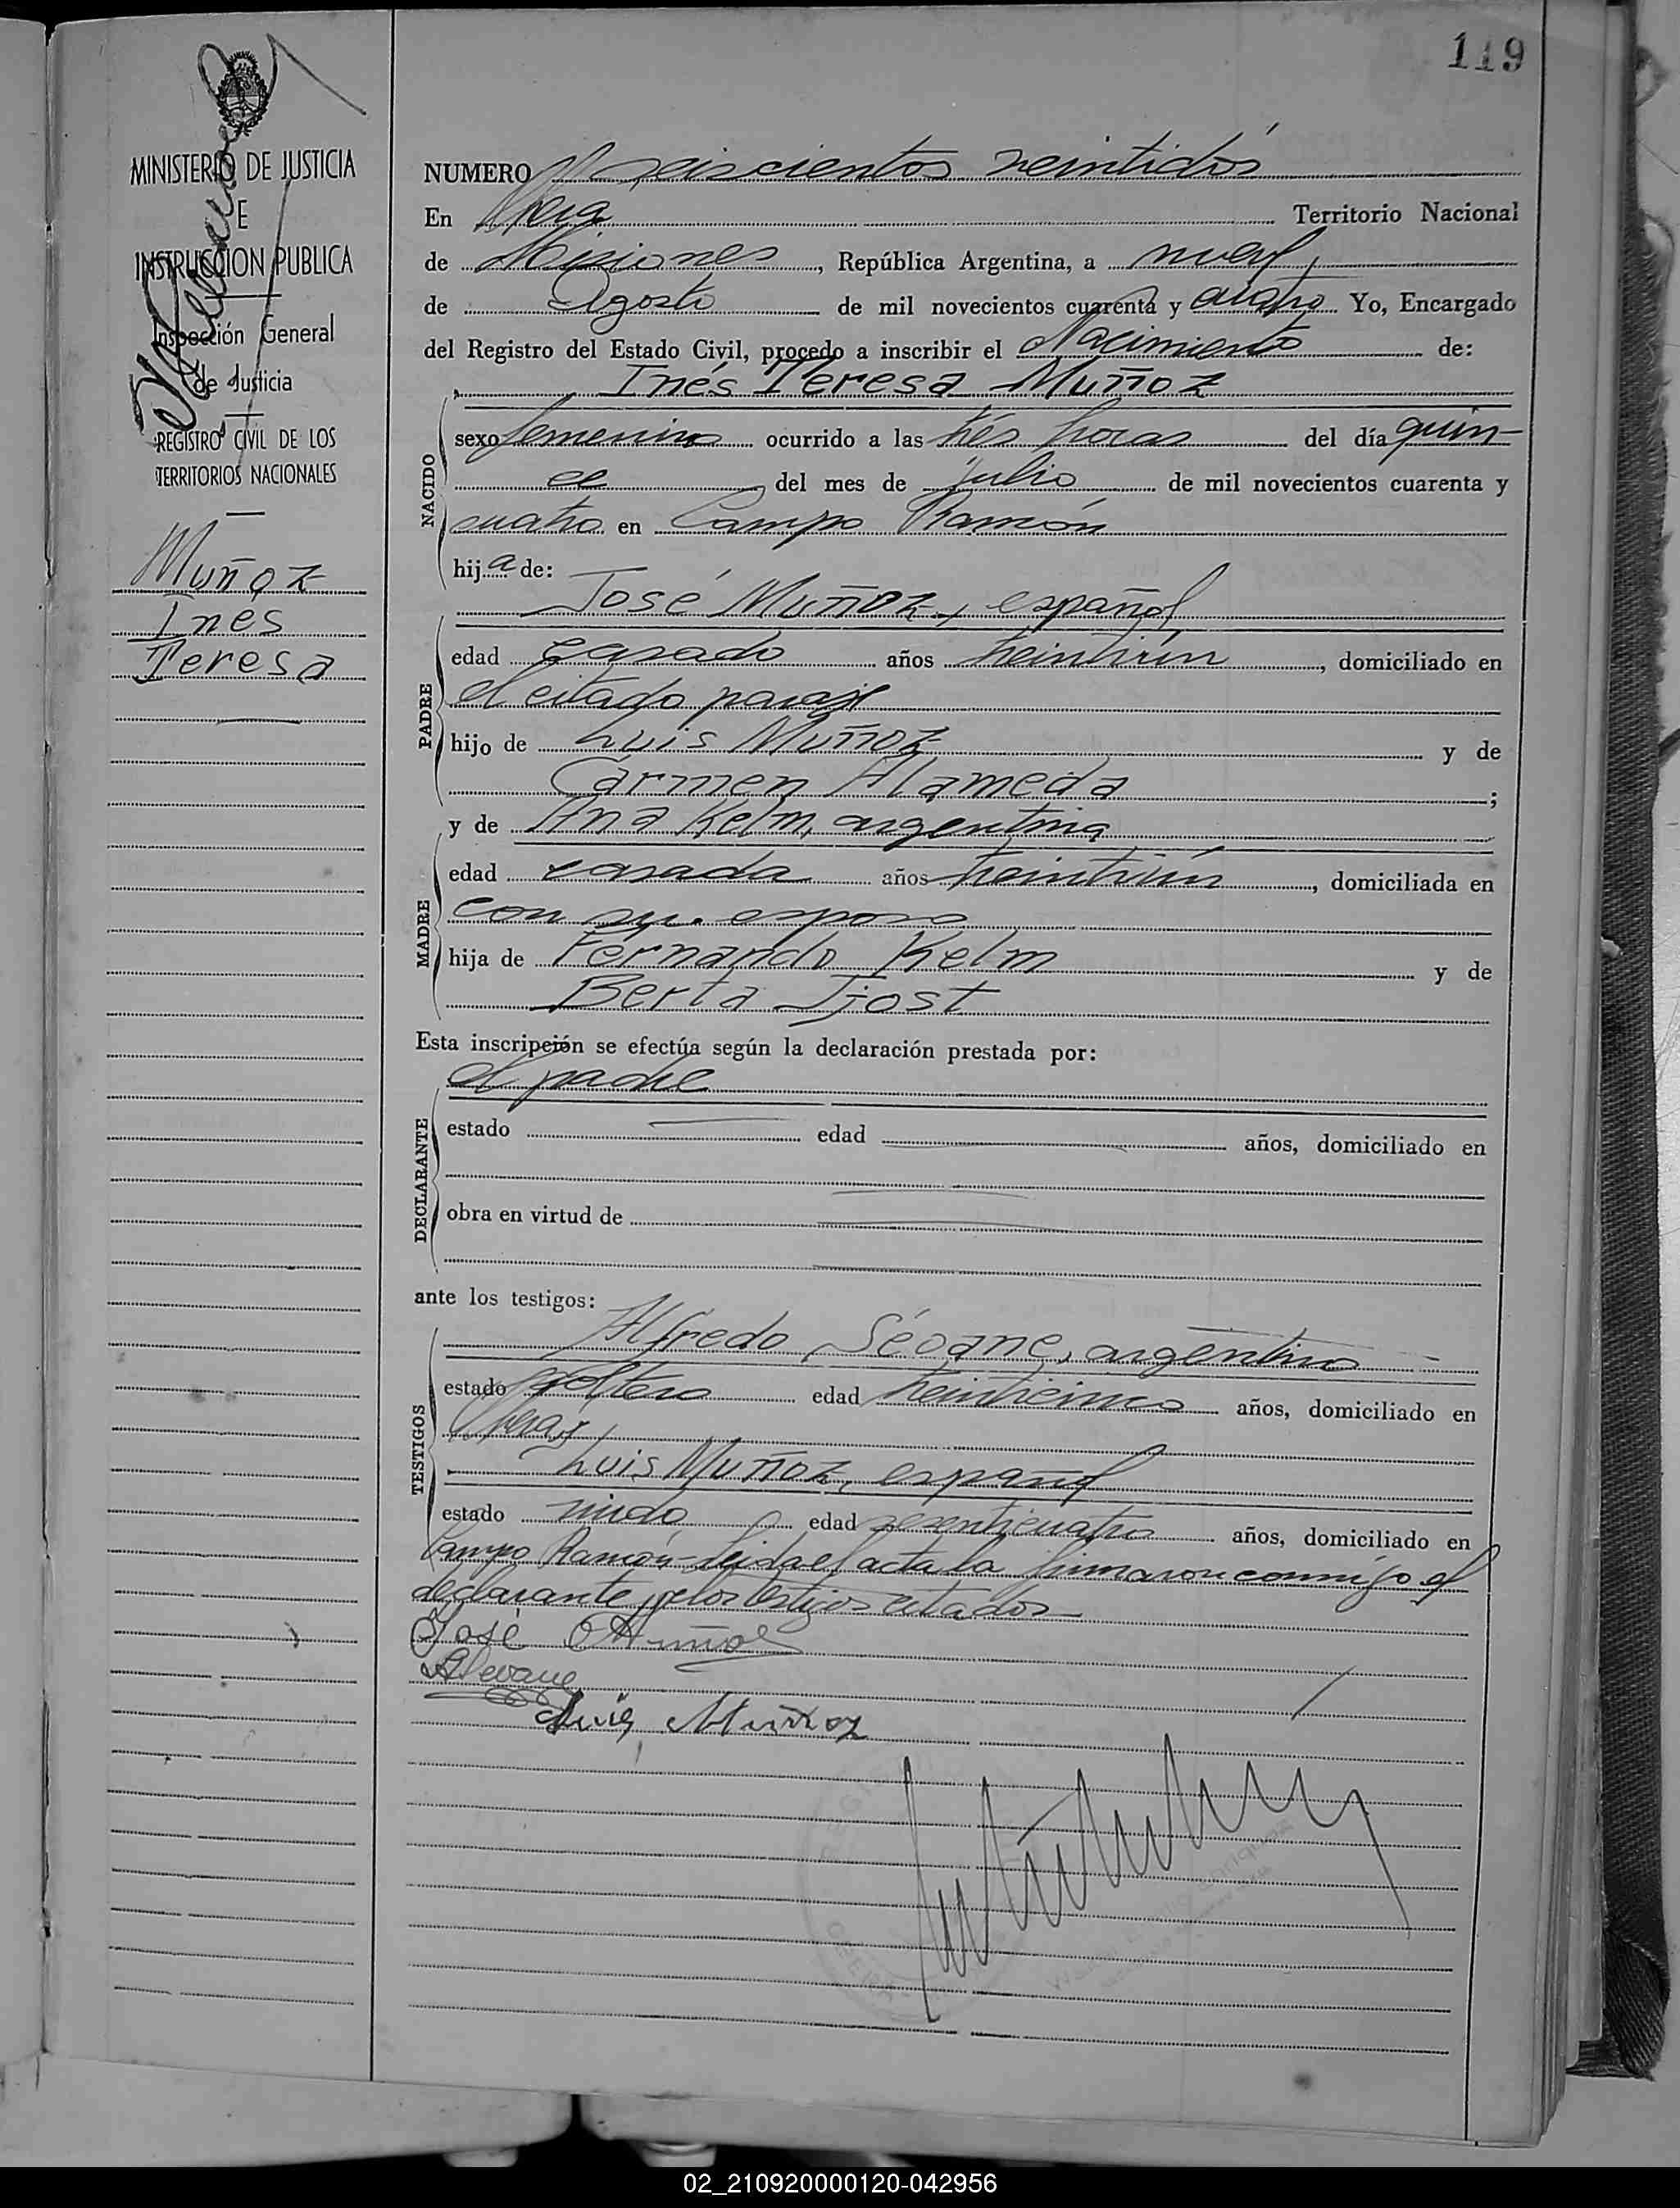 119
MINISTERIO DE JUSTICIA
E
INSTRUCCION PUBLICA
Inspección General
de Justicia
REGISTRO CIVIL DE LOS
TERRITORIOS NACIONALES
Nacimiento
Muñoz
Inés
Teresa
NUMERO seiscientos veintidós
En Oberá Territorio Nacional
de Misiones, República Argentina, a nueve
de Agosto de mil novecientos cuarenta y cuatro Yo, Encargado
del Registro del Estado Civil, procedo a inscribir el Nacimiento de:
Inés Teresa Muñoz
NACIDO
sexo femenino ocurrido a las tres horas del día quin-
ce del mes de julio de mil novecientos cuarenta y
cuatro en Campo Ramón
hija de:
José Muñoz, español
PADRE
edad casado años treintiún, domiciliado en
el citado paraje
hijo de Luis Muñoz y de
Carmen Alameda;
y de Ana Kelm, argentina
MADRE
edad casada años treintiún, domiciliada en
con su esposo
hija de Fernando Kelm y de
Berta Tjost
Esta inscripción se efectúa según la declaración prestada por:
el padre
DECLARANTE
estado edad años, domiciliado en
obra en virtud de
ante los testigos:
TESTIGOS
Alfredo Séoane, argentino
estado soltero edad treinticinco años, domiciliado en
Oberá y
Luis Muñoz, español
estado viudo edad sesenticuatro años, domiciliado en
Campo Ramón - Leida el acta la firmaron conmigo el
declarante y los testigos citados
José Muñoz
ASeoane
Luis Muñoz
02_210920000120-042956